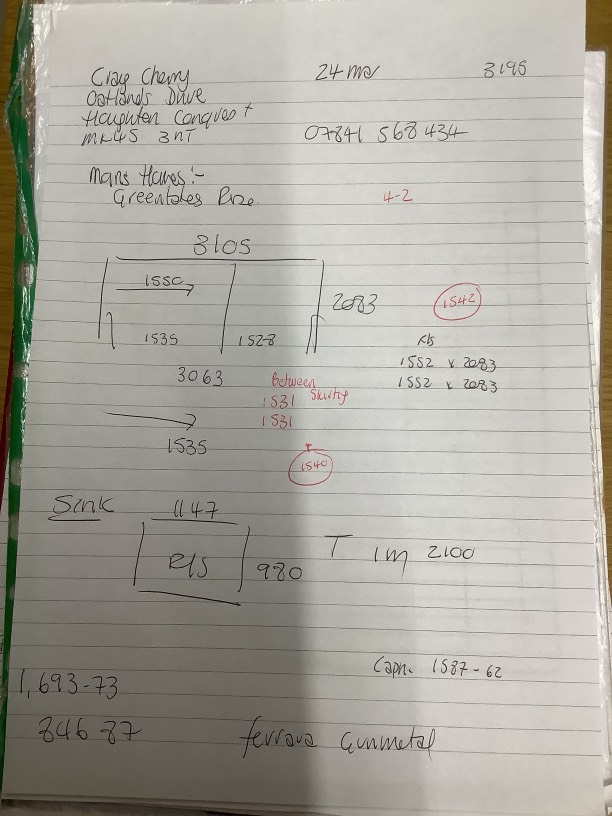 Cherry 24 Mar 3195
Oatlands Drive
Houghton Conquest
MK45 3NT 07841 568 434
Mans Homes:-
4-2
3105
1550
2083 1542
1535 1528 R/S
1552 x 2083
3063 Between 1552 x 2083
1531
1531
1535 1540
Sink 1147
R/S 980 T 1m 2100
Capn. 1587-62
1,693-73
846 87 Ferrara Gunmetal